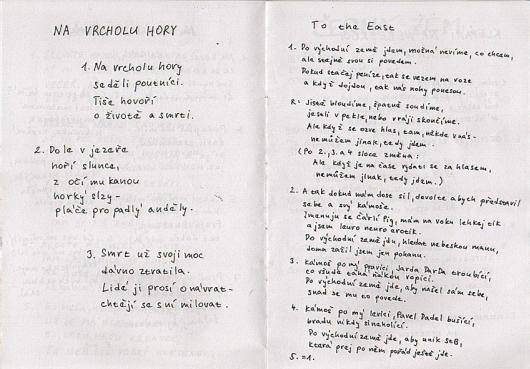 NA VRCHOLU HORY
1. Na vrcholu hory
seděli poutníci.
Tiše hovoří
o životě a smrti.
2. Dole v jezeře
hoří slunce,
z očí mu kanou
horký slzy-
pláče pro padlý anděly.
3. Smrt už svoji moc
dávno ztratila.
Lidé ji prosí o návrat-
chtějí se s ní milovat.
To the East
1. Do východní země jdem, možná nevíme, co chcem,
ale stejně svou si povedem.
Dokud stačej peníze, tak se vezem na voze
a když dojdou, tak nás nohy ponesou.
R: Jistě bloudíme, špatně soudíme,
jestli v pekle, nebo v ráji skončíme.
Ale když se ozve hlas, tam, někde v nás-
nemůžem jinak, tedy jdem.
(Po 2., 3. a 4 sloce změna:
Ale když je na čase vydati se za hlasem,
nemůžem jinak, tedy jdem.)
2. A tak dokud mám dost sil, dovolte abych představil
sebe a svý kámoše.
Jmenuju se Čárlí Pig, mám na voku lehkej tik
a jsem leuro neuro erotik.
Do východní země jdu, hledat nebeskou manu,
doma zažil jsem jen pohanu.
3. Kámoš po mý pravici, Jarda Darda troubící,
co všude tahá nálkou vopici.
Do východní země jde, aby našel sám sebe,
snad se mu to povede.
4. Kámoš po mý levici, Pavel Dadel bušící,
bradu nikdy sineholící.
Do východní země jde, aby unik SEB,
která prej po něm pořád ještě jde.
5. =1.